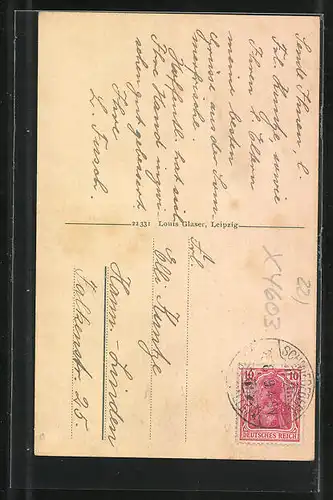 Sende Ihnen, l.
Frl. Kuntze, sowie
Ihren l. Eltern
meine besten
Grüsse aus der Som-
merfrische.
Hoffentl. hat sich
Ihre Hand inzwi-
schen gut gebessert.
Ihre
L. Fusch.
22331 Louis Glaser, Leipzig
Frl.
Elli Kuntze
Hann.-Linden
Falkenstr. 25.
X4603
22)
10 10
DEUTSCHES REICH